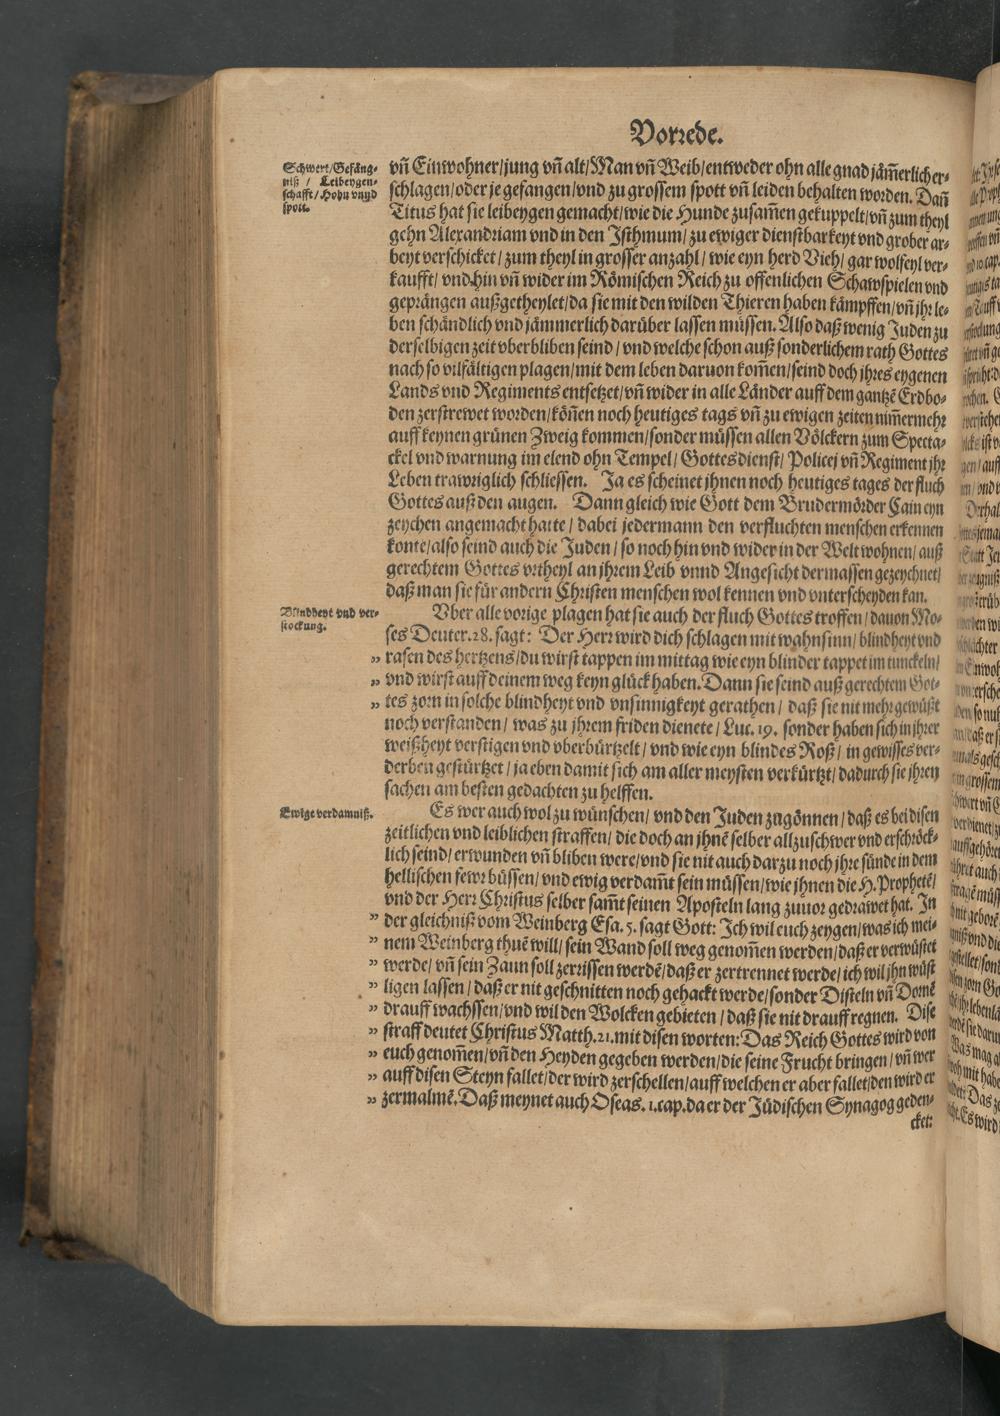 Vorrede.
Schwert/Gefäng-
niß / Leibeygen-
schafft/Hohn vnnd
spott.
vñ Einwohner/jung vñ alt/Man vñ Weib/entweder ohn alle gnad jäm̃erlich er-
schlagen/oder je gefangen/vnd zu grossem spott vñ leiden behalten worden. Dañ
Titus hat sie leibeygen gemacht/wie die Hunde zusam̃en gekuppelt/vñ zum theyl
gehn Alexandriam vnd in den Isthmum/zu ewiger dienstbarkeyt vnd grober ar-
beyt verschicket/zum theyl in grosser anzahl/wie eyn herd Vieh/gar wolfeyl ver-
kaufft/vnd hin vñ wider im Römischen Reich zu offenlichen Schawspielen vnd
geprängen außgetheylet/da sie mit den wilden Thieren haben kämpffen/vñ jhr le-
ben schändlich vnd jämmerlich darüber lassen müssen. Also daß wenig Juden zu
derselbigen zeit vberbliben seind/vnd welche schon auß sonderlichem rath Gottes
nach so vilfältigen plagen/mit dem leben daruon kom̃en/seind doch jhres eygenen
Lands vnd Regiments entsetzet/vñ wider in alle Länder auff dem gantzē Erdbo-
den zerstrewet worden/köñen noch heutiges tags vñ zu ewigen zeiten nim̃ermehr
auff keynen grünen Zweig kommen/sonder müssen allen Völckern zum Specta-
ckel vnd warnung im elend ohn Tempel/Gottesdienst/Policej vñ Regiment jhr
Leben trawriglich schliessen. Ja es scheinet jhnen noch heutiges tages der fluch
Gottes auß den augen. Dann gleich wie Gott dem Brudermörder Cain eyn
zeychen angemacht hatte/dabei jedermann den verfluchten menschen erkennen
konte/also seind auch die Juden/so noch hin vnd wider in der Welt wohnen/auß
gerechtem Gottes vrtheyl an jhrem Leib vnnd Angesicht dermassen gezeychnet/
daß man sie für andern Christen menschen wol kennen vnd vnterscheyden kan.
Blindheyt vnd ver-
stockung.
Vber alle vorige plagen hat sie auch der fluch Gottes troffen/dauon Mo-
ses Deuter. 28. sagt: Der Herr wird dich schlagen mit wahnsinn/blindheyt vnd
„ rasen des hertzens/du wirst tappen im mittag wie eyn blinder tappet im tunckeln/
„ vnd wirst auff deinem weg keyn glück haben. Dann sie seind auß gerechtem Got-
„ tes zorn in solche blindheyt vnd vnsinnigkeyt gerathen/daß sie nit mehr gewüßt
noch verstanden/was zu jhrem friden dienete/Luc. 19. sonder haben sich in jhrer
weißheyt verstigen vnd vberbürtzelt/vnd wie eyn blindes Roß/in gewisses ver-
derben gestürtzet/ja eben damit sich am aller meysten verkürtzt/dadurch sie jhren
sachen am besten gedachten zu helffen.
Ewige verdamniß.
Es wer auch wol zu wünschen/vnd den Juden zugönnen/daß es bei disen
zeitlichen vnd leiblichen straffen/die doch an jhnē selber allzuschwer vnd erschröck-
lich seind/erwunden vñ bliben were/vnd sie nit auch darzu noch jhre sünde in dem
hellischen fewr büssen/vnd ewig verdam̃t sein müssen/wie jhnen die H. Prophetē/
vnd der Herr Christus selber sam̃t seinen Aposteln lang zuuor gedrawet hat. In
„ der gleichniß vom Weinberg Esa. 5. sagt Gott: Ich wil euch zeygen/was ich mei-
„ nem Weinberg thuē will/sein Wand soll weg genom̃en werden/daß er verwüstet
„ werde/vñ sein Zaun soll zerrissen werdē/daß er zertrennet werde/ich wil jhn wüst
„ ligen lassen/daß er nit geschnitten noch gehackt werde/sonder Disteln vñ Dornē
„ drauff wachssen/vnd wil den Wolcken gebieten/daß sie nit drauff regnen. Dise
„ straff deutet Christus Matth. 21. mit disen worten: Das Reich Gottes wird von
„ euch genom̃en/vñ den Heyden gegeben werden/die seine Frucht bringen/vñ wer
„ auff disen Steyn fallet/der wird zerschellen/auff welchen er aber fallet/den wird er
„ zermalmē. Daß meynet auch Oseas. 1. cap. da er der Jüdischen Synagog geden-
cket: